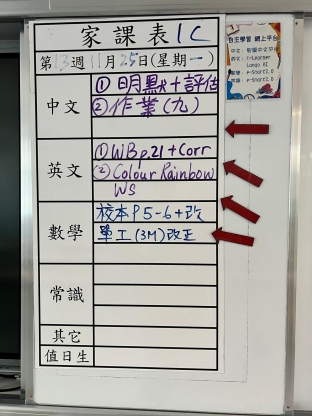 家課表 1C
第13週 11月25日(星期一)
中文
①明默+評估
②作業(九)
英文
①WB p.21+Corr
②Colour Rainbow
WS
數學
校本P5-6+改
單工(3M)改正
常識
其它
值日生
自主學習 網上平台
i-Learner
e-Smart2.0
e-Smart2.0